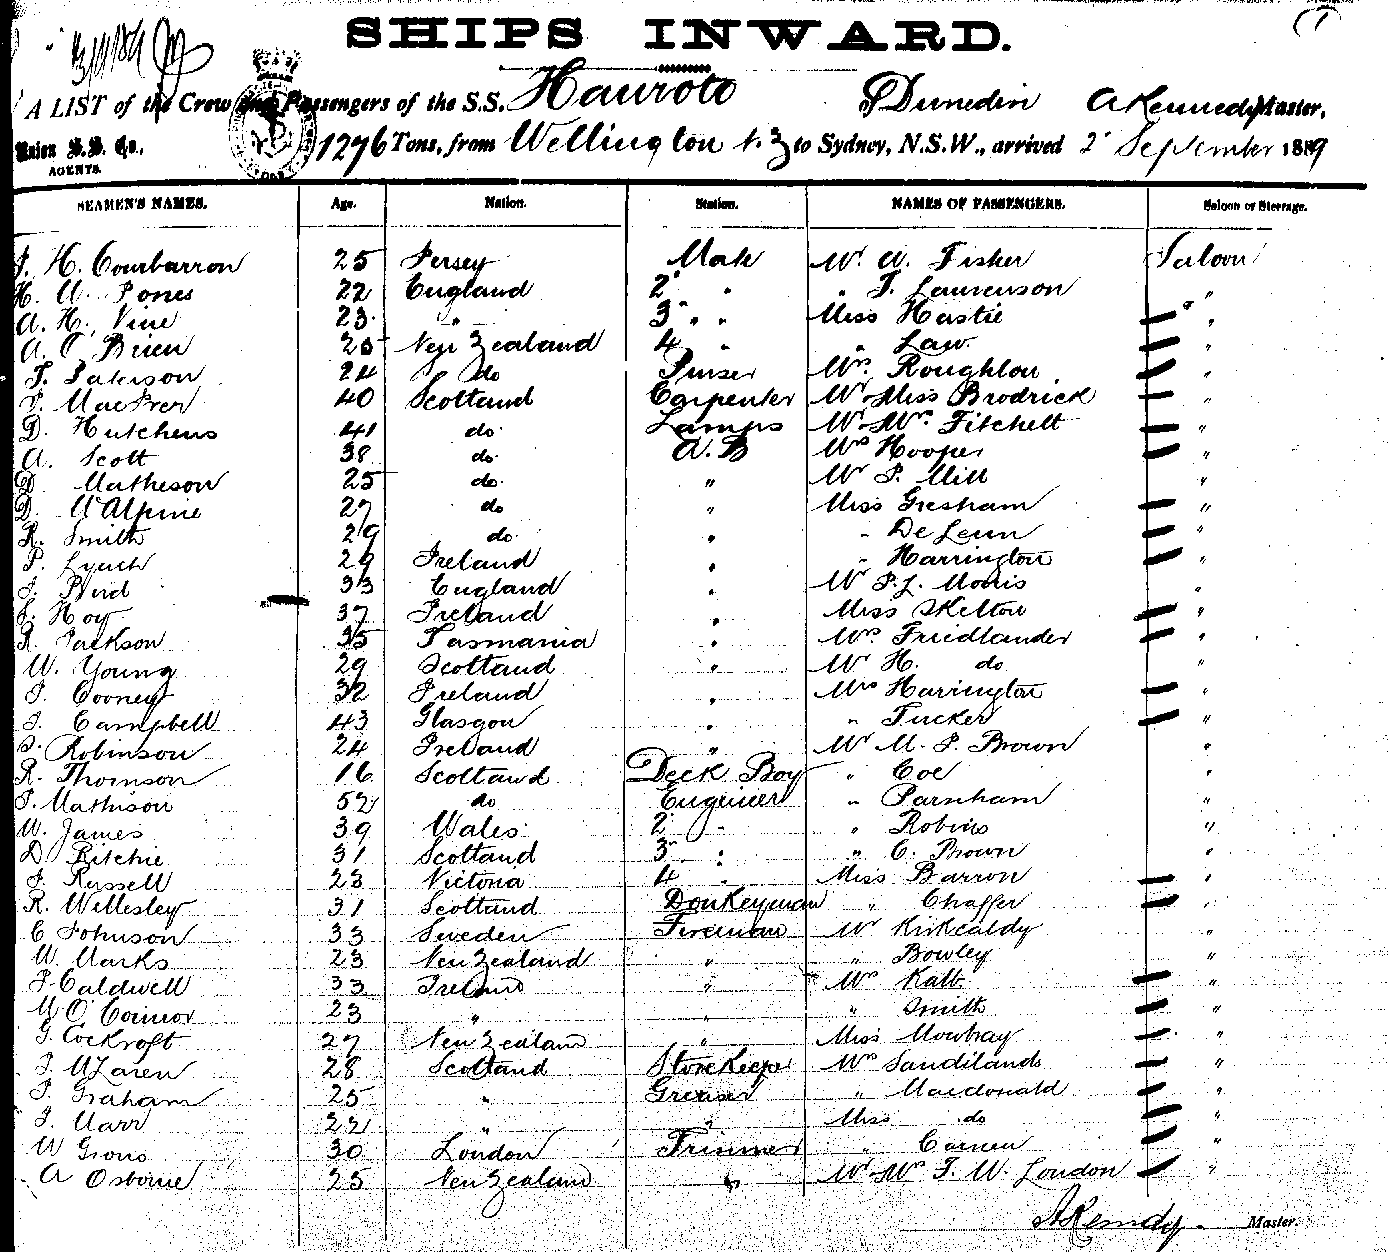 SHIPS INWARD.
A LIST of the Crew and Passengers of the S.S. Hauroto Dunedin A Kennedy Master,
Union S.S. Co., 1276 Tons, from Wellington N.Z to Sydney, N.S.W., arrived 2 September 1889
AGENTS.
SEAMEN'S NAMES. Age. Nation. Station. NAMES OF PASSENGERS. Saloon or Steerage.
H. Courbarron 25 Jersey Mate Mr. A. Fisher Saloon
H. A. Jones 22 England 2 " " T. Laurenson "
A. H. Vine 23 " 3 " " Miss Hastie "
A. O'Brien 25 New Zealand 4 " " Law "
J. Paterson 24 do Purser Mrs. Roughton "
40 Scotland Carpenter Mr & Miss Brodrick "
D. Hutchens 41 do Lamps Mr & Mrs. Fitchett "
A. Scott 38 do A.B Mrs Hooper "
D. Matheson 25 do " Mr P. Mill "
D. McAlpine 27 do " Miss Gresham "
R. Smith 29 do " " De Leun "
P. Lynch 29 Ireland " " Harrington "
J. Bird 33 England " Mr P.L. Morris "
Hoy 37 Ireland " Miss Skelton "
R. Jackson 35 Tasmania " Mrs. Friedlander "
W. Young 29 Scotland " Mr H. do "
J. Cooney 32 Ireland " Mrs Harrington "
J. Campbell 43 Glasgow " " Tucker "
Robinson 24 Ireland " Mr M. J. Brown "
R. Thomson 16 Scotland Deck Boy " Coe "
J. Mathison 52 do Engineer " Parnham "
W. James 39 Wales 2 " " Robins "
D Ritchie 31 Scotland 3 " " C. Brown "
J. Russell 23 Victoria 4 " Miss Barron "
R. Wellesley 31 Scotland Donkeyman " Chaffer "
C Johnson 33 Sweden Fireman Mr Kirkcaldy "
W. Marks 23 New Zealand " " Bowley "
J. Caldwell 33 Ireland " Mrs Kalt "
M O'Connor 23 " " " Smith "
G. Cockroft 27 New Zealand " Miss Mowbray "
J. McLaren 28 Scotland Storekeepr Mrs Sandilands "
J. Graham 25 " Greaser " Macdonald "
J. Marr 22 " " Miss do "
W 30 London Trimmer " "
A Osborne 25 New Zealand " Mr & Mrs J. W. London "
A Kennedy Master.